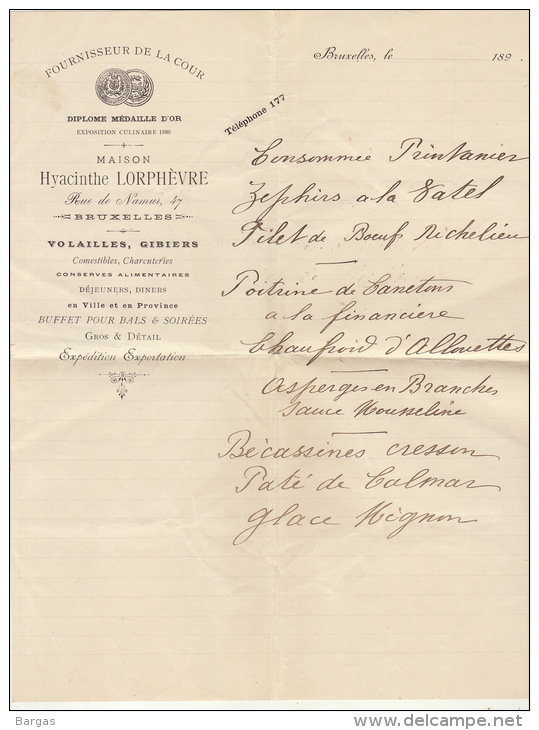 FOURNISSEUR DE LA COUR
DIPLOME MÉDAILLE D'OR
EXPOSITION CULINAIRE 1886
MAISON
Hyacinthe LORPHÈVRE
Rue de Namur, 47
BRUXELLES
VOLAILLES, GIBIERS
Comestibles, Charcuteries
CONSERVES ALIMENTAIRES
DÉJEUNERS, DINERS
en Ville et en Province
BUFFET POUR BALS & SOIRÉES
GROS & DÉTAIL
Expédition Exportation
Bruxelles, le 189 .
Téléphone 177
Consommée Printanier
Zephirs a la Vatel
Filet de Boeuf Richelieu
Poitrine de Canetons
a la financiere
Chaufroid d'Allouettes
Asperges en Branches
Sauce Mousseline
Bécassines cresson
Paté de Colmar
Glace Mignon
Bargas
www.delcampe.net